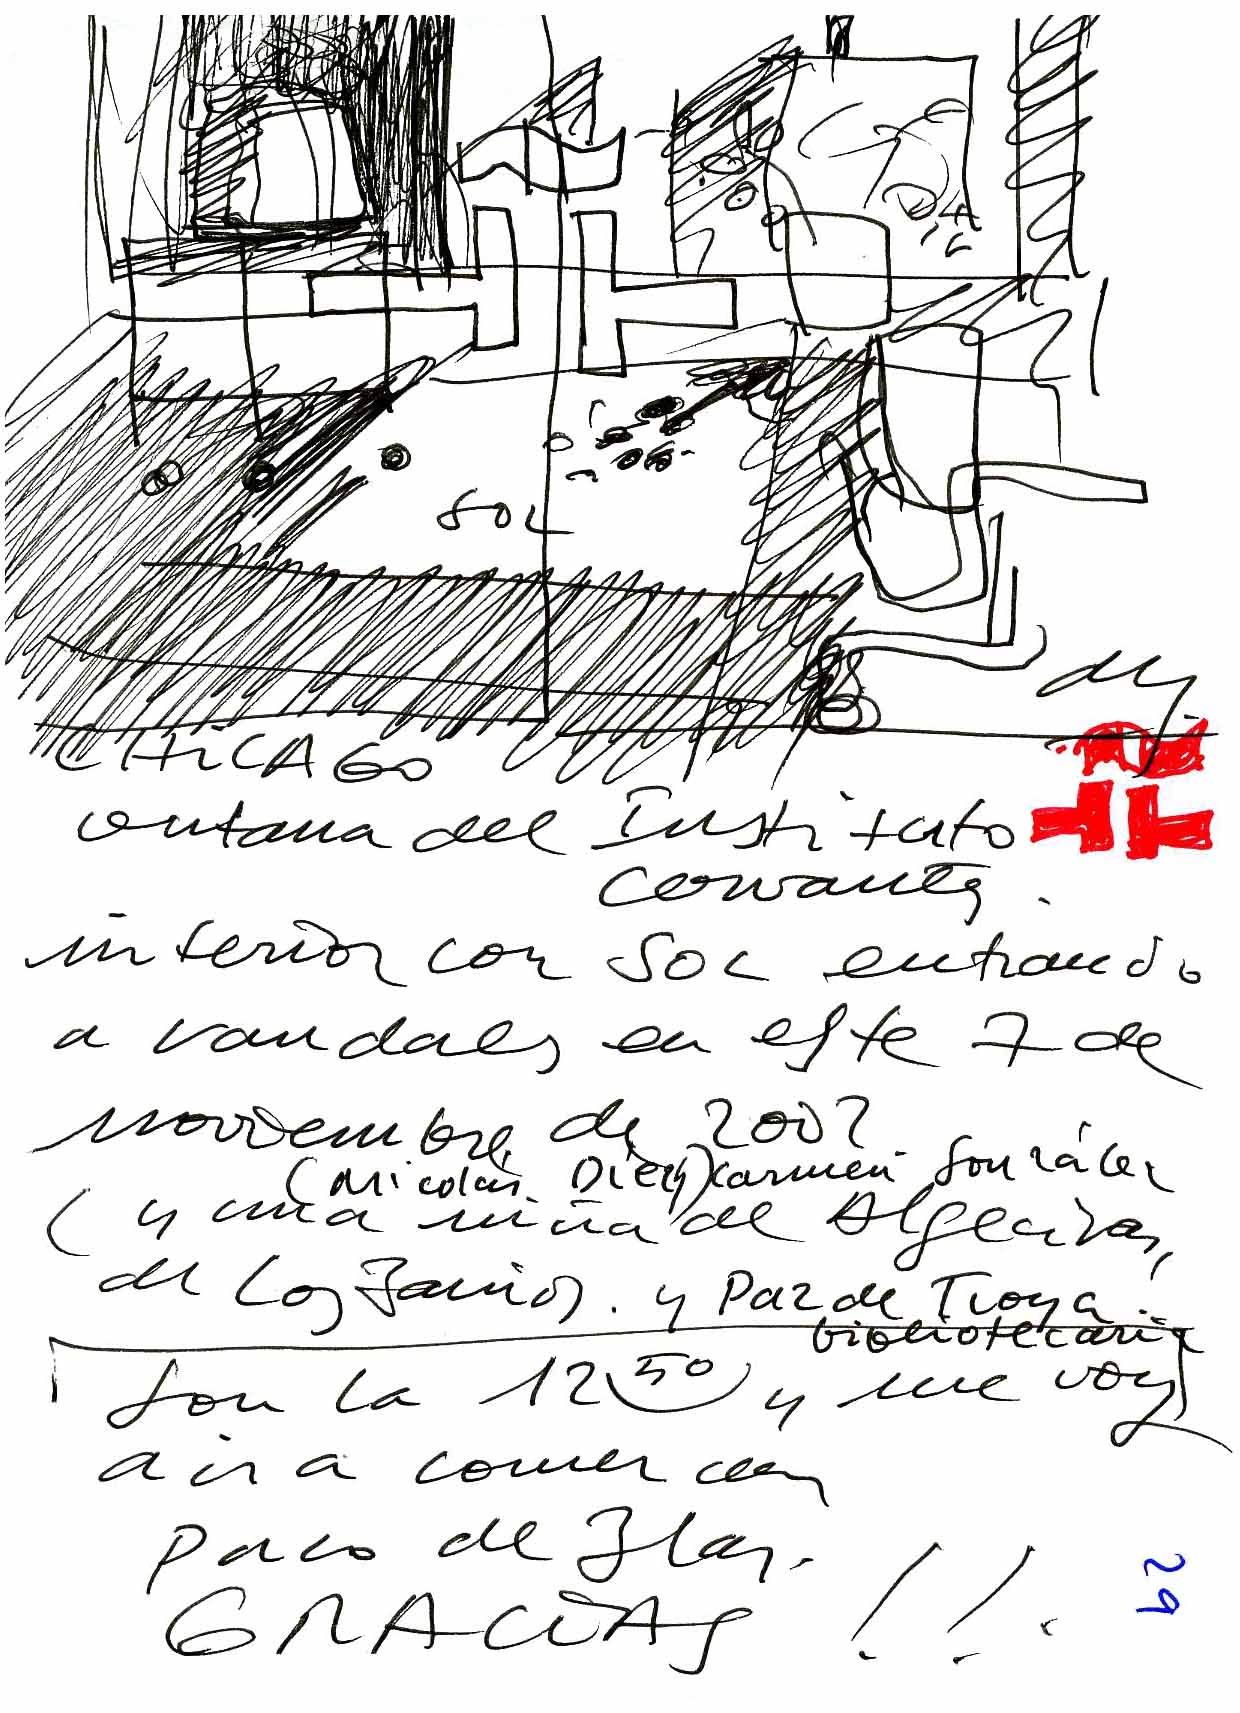 SOL
CHICAGO
ventana del Instituto
Cervantes.
interior con SOL entrando
a raudales en este 7 de
noviembre de 2002
(Nicolás Díez) Carmen González
(y una niña de Algeciras,
de Los Barrios. y Paz de Troya
bibliotecaria
Son la 12 50 y me voy
a ir a comer con
Paco de Blas.
GRACIAS !!.
29